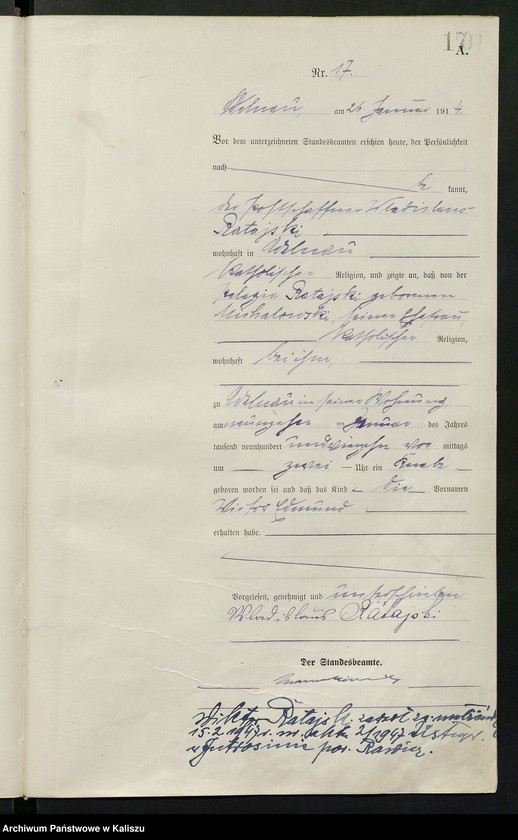 17
A.
Nr. 17.
Adelnau, am 26. Januar 1914.
Vor dem unterzeichneten Standesbeamten erschien heute, der Persönlichkeit
nach be kannt,
der Postschaffner Wladislaus
Ratajski
wohnhaft in Adelnau
katholischer Religion, und zeigte an, daß von der
Pelagia Ratajski geborenen
Michalowski, seiner Ehefrau,
katholischer Religion,
wohnhaft bei ihm,
zu Adelnau in seiner Wohnung
am neunzehn ten Januar des Jahres
tausend neunhundert undvierzehn vor mittags
um zwei Uhr ein Knabe
geboren worden sei und daß das Kind die Vornamen
Victor Edmund
erhalten habe.
Vorgelesen, genehmigt und unterschrieben
Wladislaus Ratajski
Der Standesbeamte.
Wiktor Ratajski zawarł zw. małżeński
15.2.1947 r. nr. aktu 2/1947 U.S.C.
w Jutrosinie pow. Rawicz.
Archiwum Państwowe w Kaliszu